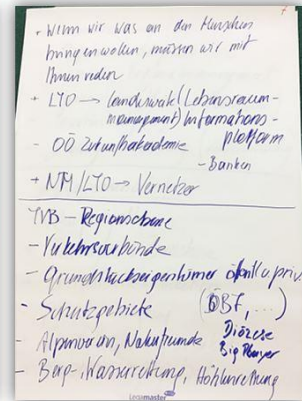 • Wenn wir was an den Menschen
bringen wollen, müssen wir mit
Ihnen reden
+ LTO → (Lebensraum-
management) Informations-
plattform
- OÖ Zukunftsakademie
- Banken
+ NM/LTO → Vernetzer
TVB - Regionsebene
- Verkehrsverbünde
- Grundstückseigentümer öffentl. u. priv.
- Schutzgebiete (ÖBF, ...)
Diözese
- Alpenverein, Naturfreunde Big Player
- Berg-, Wasserrettung, Höhlenrettung
Legamaster